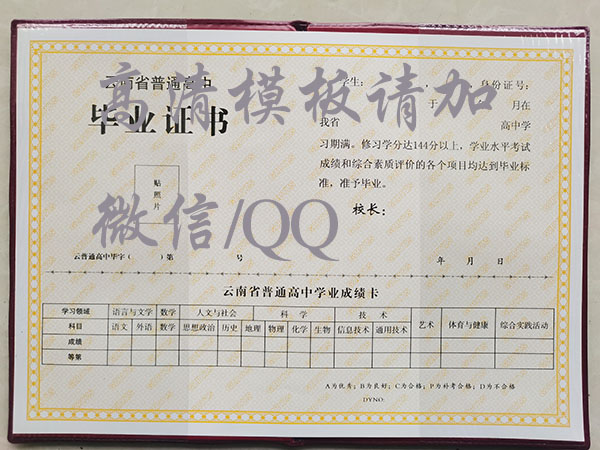 云南省普通高中
毕业证书
贴
照
片
云普通高中毕字（ ）第 号
学生： , , 身份证号：
于 月在
我省 高中学
习期满。修习学分达144分以上，学业水平考试
成绩和综合素质评价的各个项目均达到毕业标
准，准予毕业。
校长：
年 月 日
高清模板请加
微信/QQ
云南省普通高中学业成绩卡
学习领域 语言与文学 数学 人文与社会 科 学 技 术 艺术 体育与健康 综合实践活动
科目 语文 外语 数学 思想政治 历史 地理 物理 化学 生物 信息技术 通用技术
成绩
等第
A为优秀；B为良好；C为合格；P为补考合格；D为不合格
DYNO: